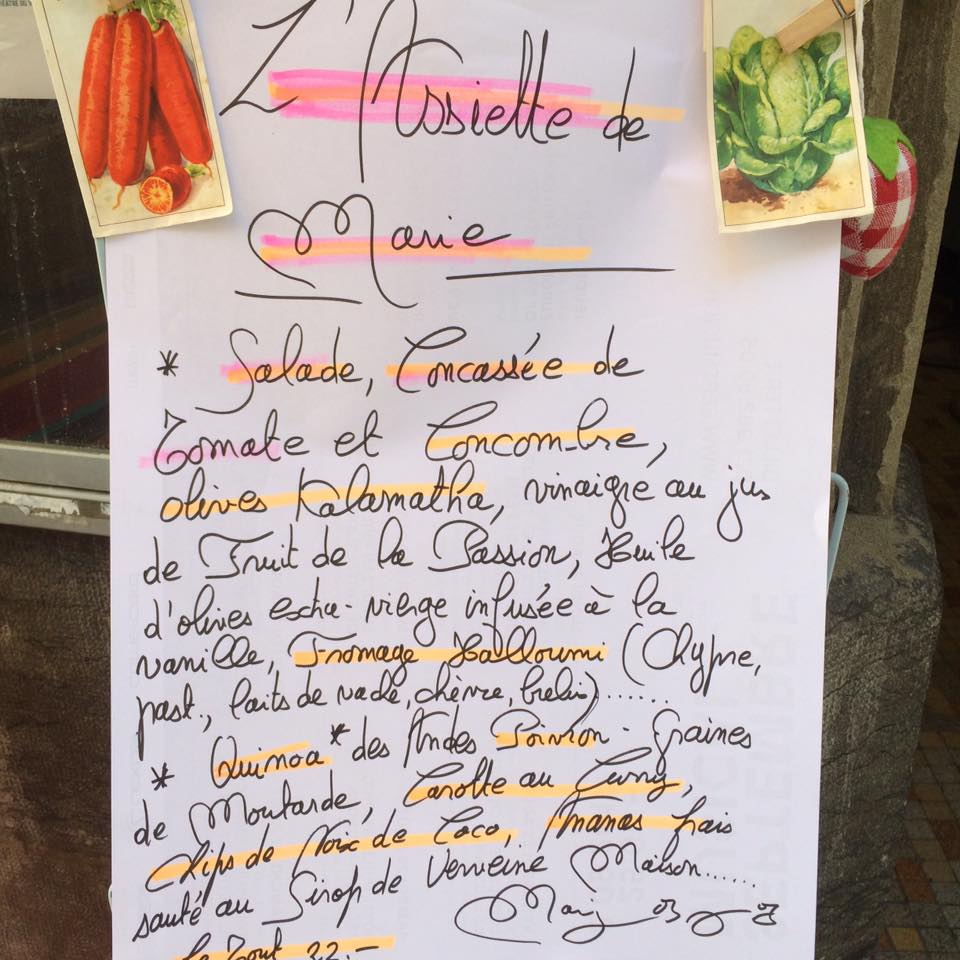 L'Assiette de
Marie
* Salade, Concassée de
Tomate et Concombre,
olives Kalamatha, vinaigre au jus
de Fruit de la Passion, Huile
d'olives extra-vierge infusée à la
vanille, Fromage Halloumi (Chypre,
past., laits de vache, chèvre, brebis).....
* Quinoa* des Andes Poivron - Graines
de Moutarde, Carotte au Curry,
Chips de Noix de Coco, Ananas frais
sauté au Sirop de Verveine Maison.....
Le Tout 22.-